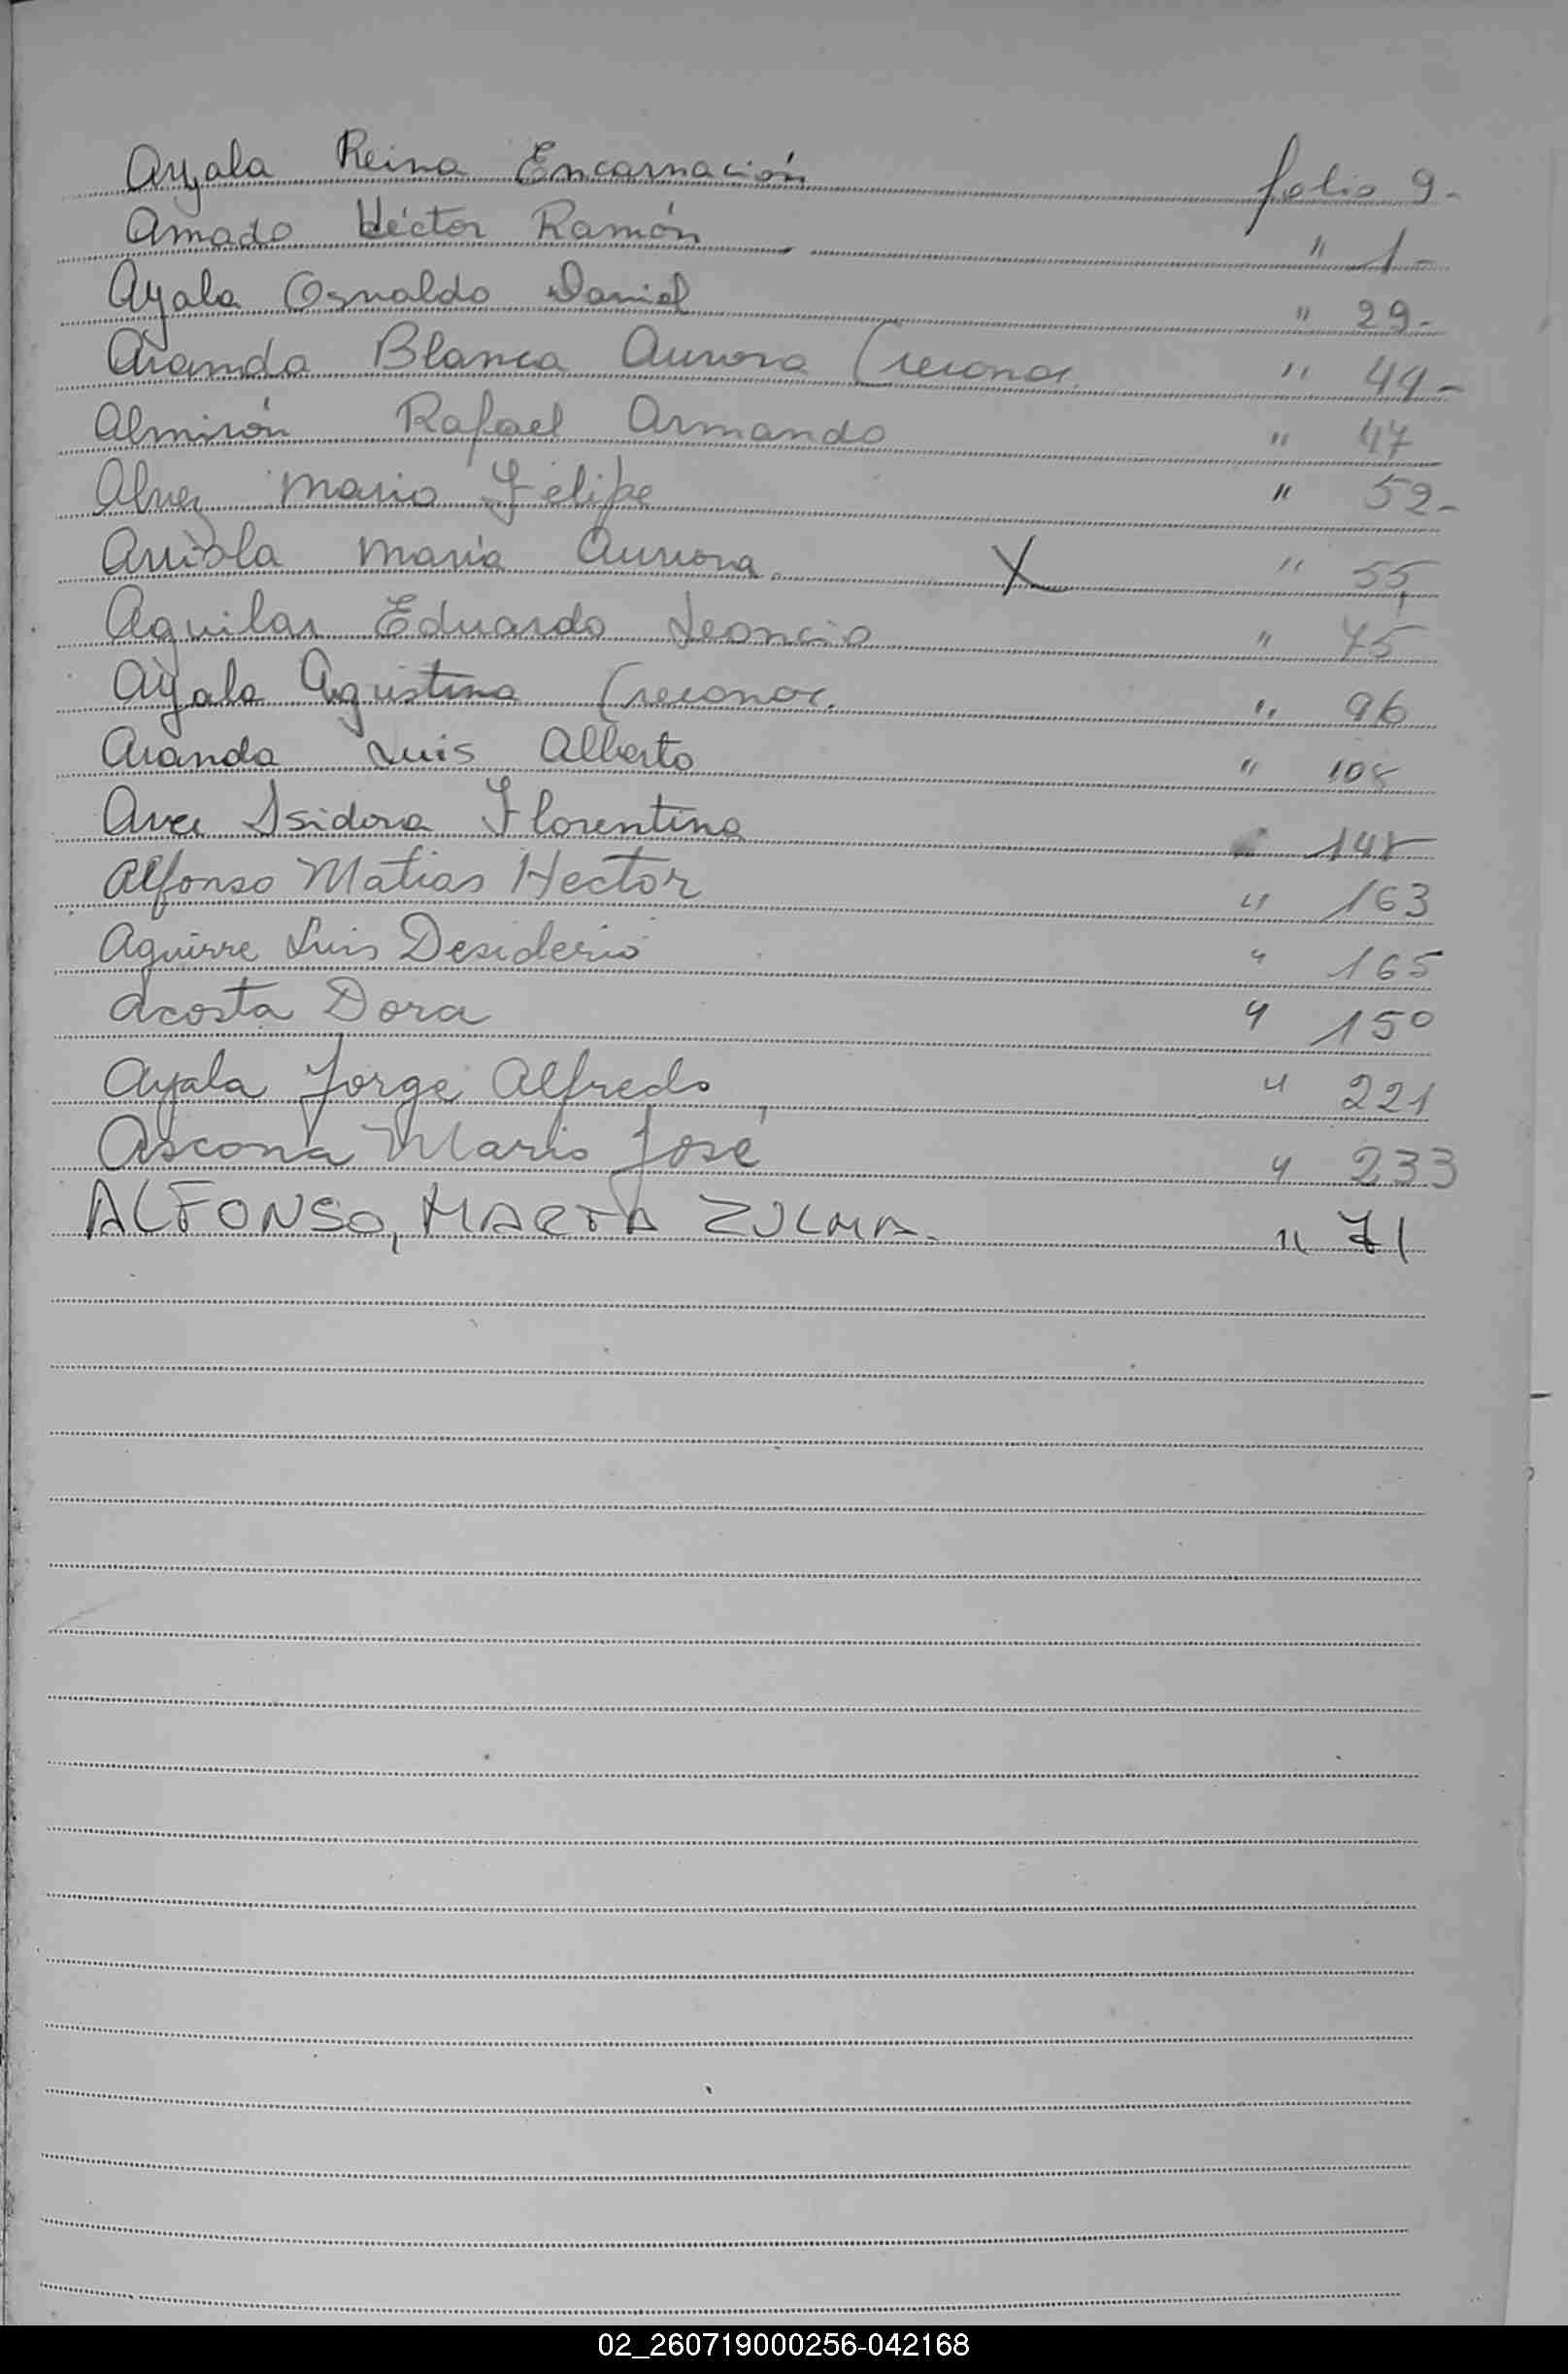 Ayala Reina Encarnación folio 9-
Amado Héctor Ramón " 1-
Ayala Osvaldo Daniel " 29-
Aranda Blanca Aurora (reconoc. " 44-
Almirón Rafael Armando " 47
Alvez Mario Felipe " 52-
Arriola María Aurora X " 55
Aguilar Eduardo Leoncio " 75
Ayala Agustina (reconoc. " 96
Aranda Luis Alberto " 108
Arce Isidora Florentina " 148
Alfonso Matias Hector " 163
Aguirre Luis Desiderio " 165
Acosta Dora " 150
Ayala Jorge Alfredo " 221
Ascona Mario José " 233
ALFONSO, MARTA ZULMA. " 71
02_260719000256-042168